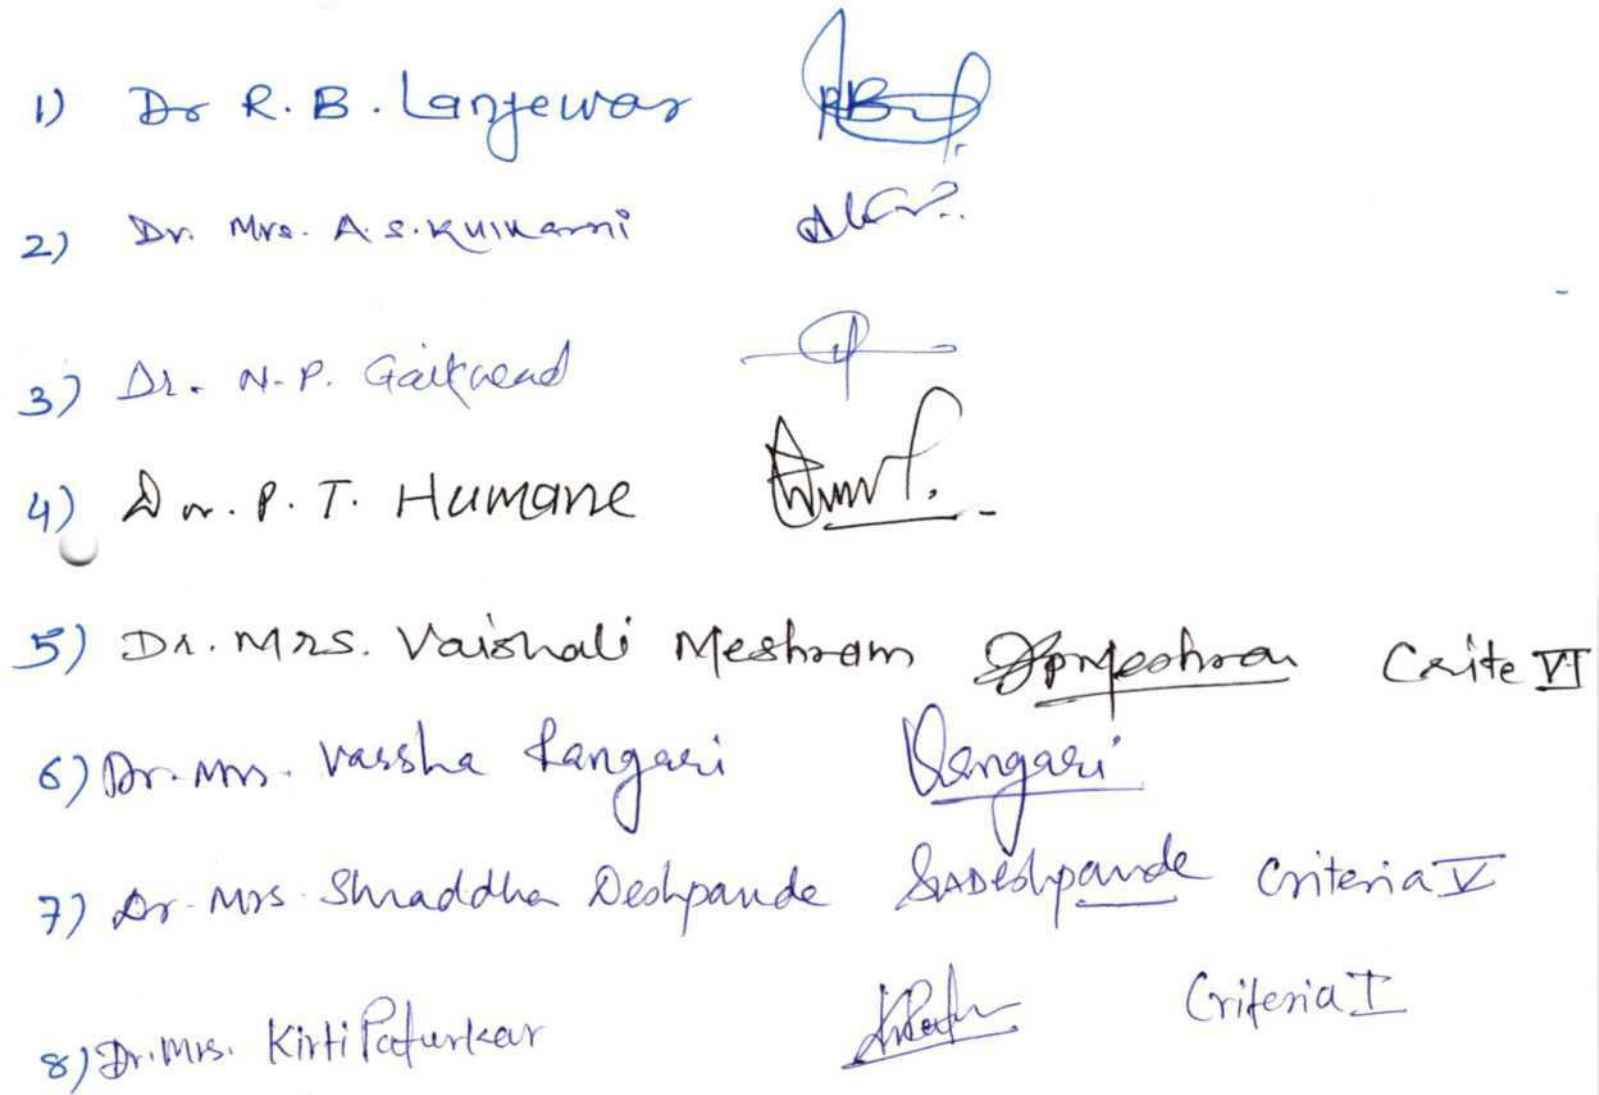 1) Dr R. B. Lanjewar
2) Dr. Mrs. A. S. Kulkarni
3) Dr. N. P. Gaikwad
4) Dr. P. T. Humane
5) Dr. Mrs. Vaishali Meshram Meshram Crite VI
6) Dr. Mrs. Varsha Rangari Rangari
7) Dr. Mrs. Shraddha Deshpande SADeshpande Criteria V
8) Dr. Mrs. Kirti Paturkar Criteria I